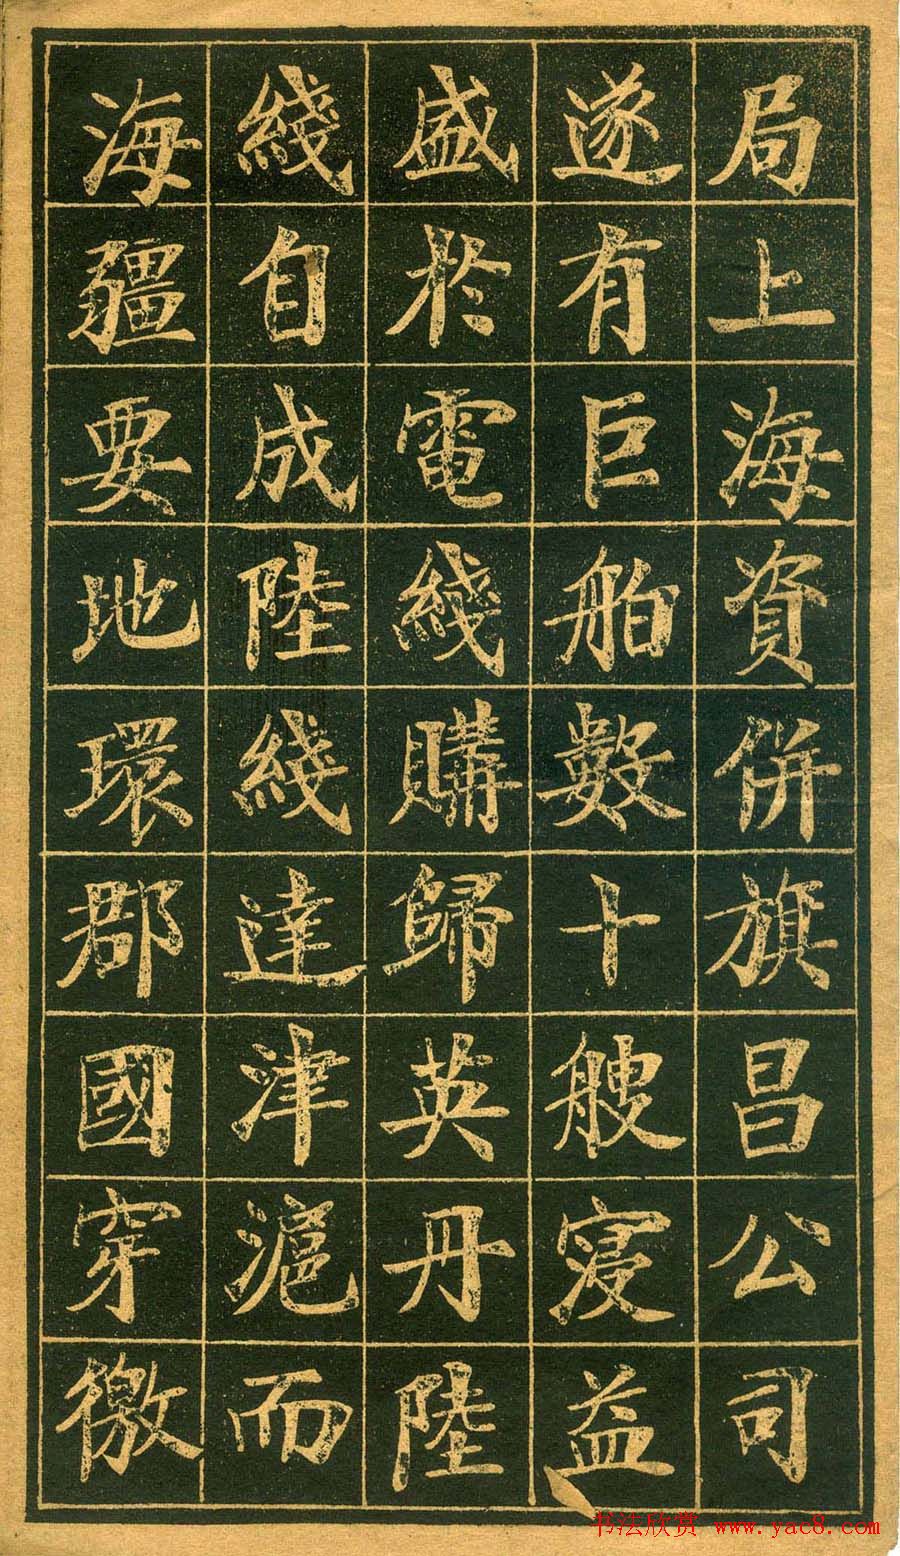 局上海資併旗昌公司
遂有巨舶數十艘寖益
盛於電綫購歸英丹陸
綫自成陸綫達津滬而
海疆要地環郡國穿徼
书法欣赏 www.yac8.com